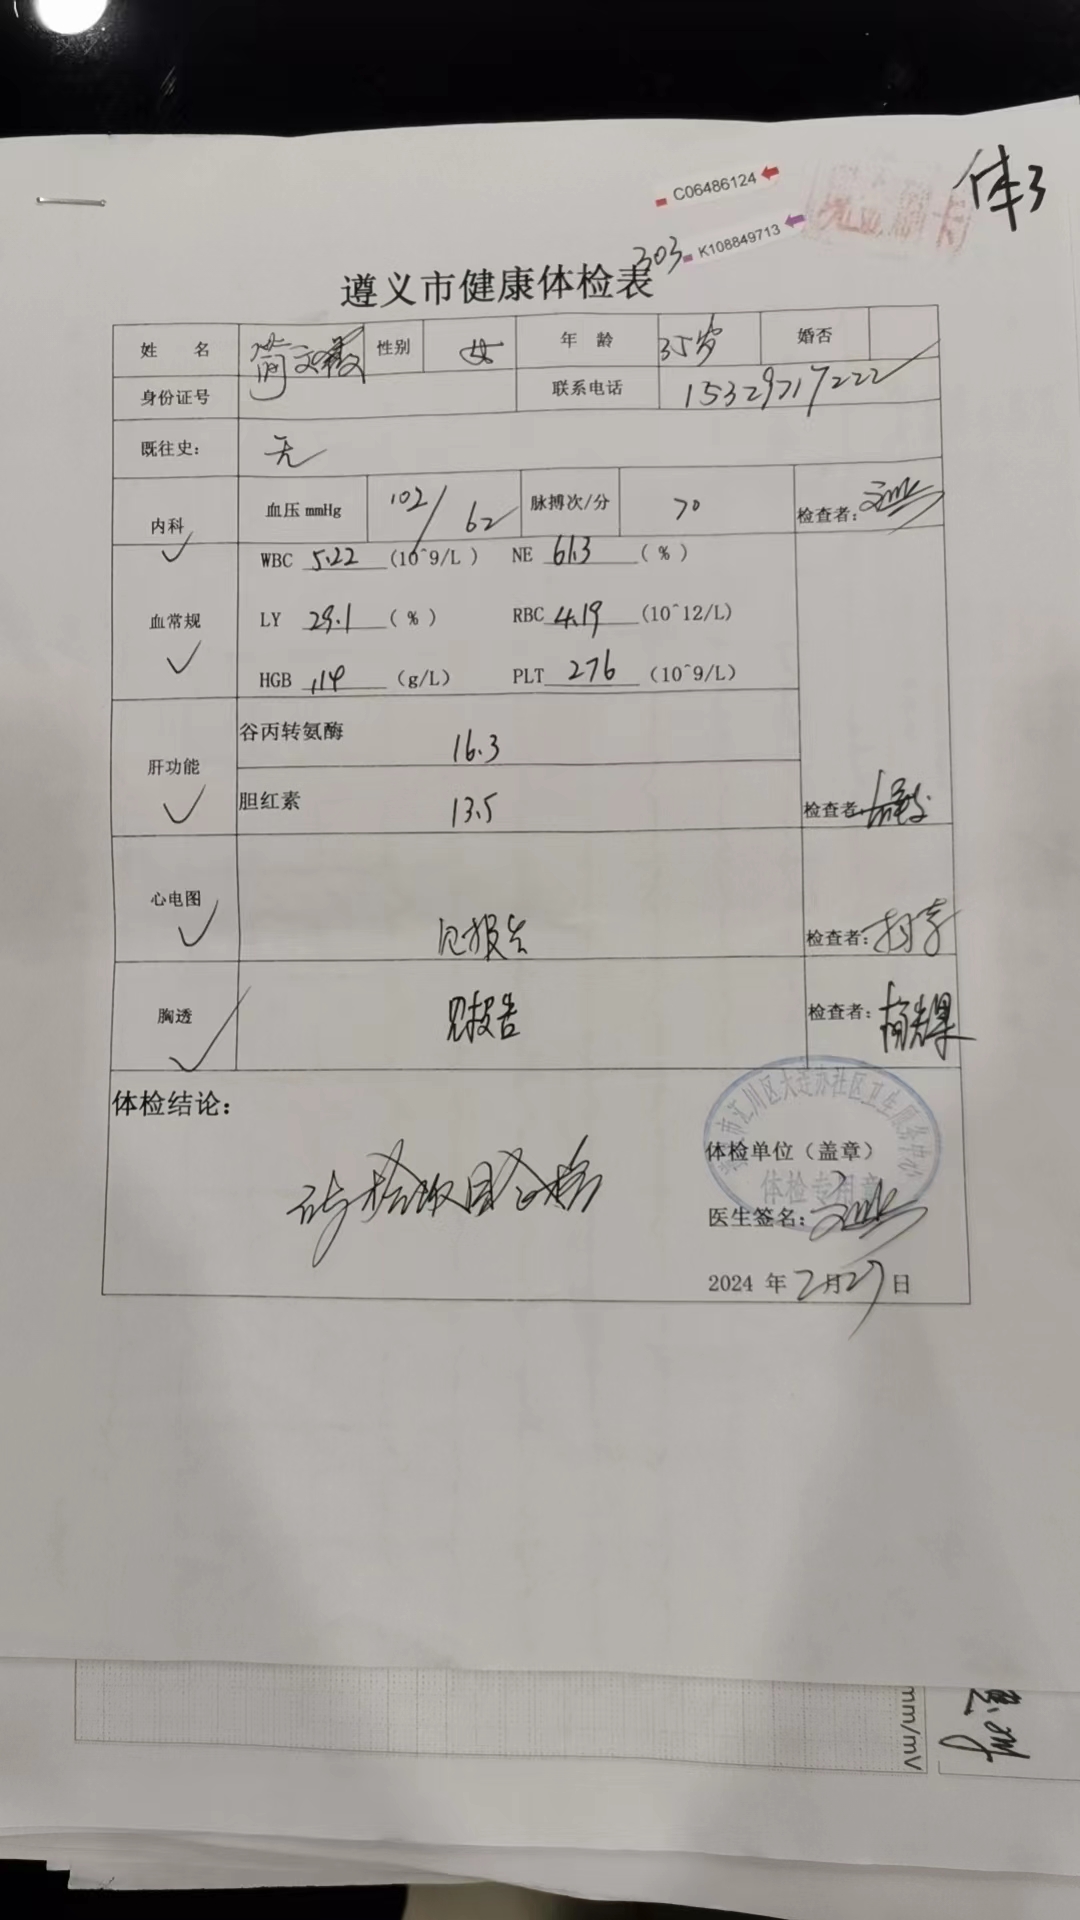 体3
C06486124
303 K108849713
遵义市健康体检表
姓 名 简 性别 女 年 龄 35岁 婚否
身份证号 联系电话 15329717222
既往史: 无
内科 血压 mmHg 102/62 脉搏次/分 70 检查者:
血常规 WBC 5.22 (10^9/L) NE 61.3 (%)
LY 29.1 (%) RBC 4.19 (10^12/L)
HGB 114 (g/L) PLT 276 (10^9/L)
肝功能 谷丙转氨酶 16.3
胆红素 13.5 检查者:
心电图 见报告 检查者:
胸透 见报告 检查者:
体检结论:
所检项目合格
汇川区大连办社区卫生服务中心
体检专用章
体检单位(盖章)
医生签名:
2024 年 2月27日
mm/mV